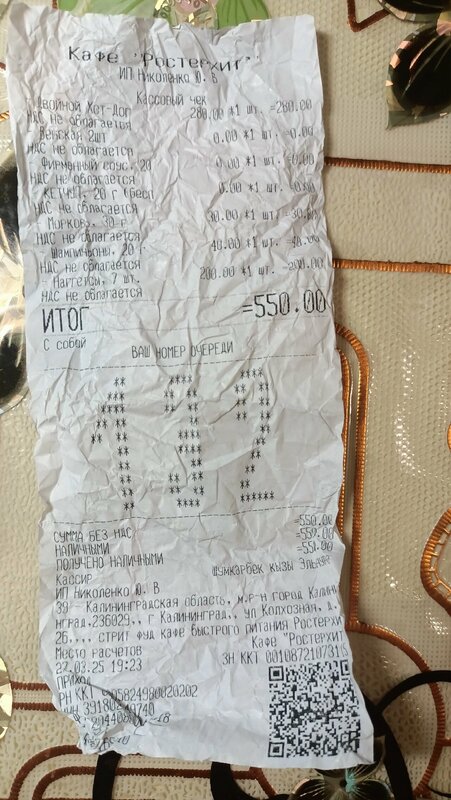 Кафе "Ростерхит"
ИП Николенко Ю. В
Кассовый чек
Двойной Хот-Дог 280.00 *1 шт. =280.00
НДС не облагается
Венская 2шт 0.00 *1 шт. =0.00
НДС не облагается
Фирменный соус, 20 0.00 *1 шт. =0.00
НДС не облагается
КЕТЧУП, 20 г (бесп 0.00 *1 шт. =0.00
НДС не облагается
Морковь, 30 г 30.00 *1 шт. =30.00
НДС не облагается
Шампиньоны, 20 г 40.00 *1 шт. =40.00
НДС не облагается
Наггетсы, 7 шт. 200.00 *1 шт. =200.00
НДС не облагается
ИТОГ =550.00
С собой
ВАШ НОМЕР ОЧЕРЕДИ
СУММА БЕЗ НДС =550.00
НАЛИЧНЫМИ
ПОЛУЧЕНО НАЛИЧНЫМИ
Кассир Шумкарбек кызы
ИП Николенко Ю. В
39 - Калининградская область, м.р-н город Калини
нград,236029,, г Калининград,, ул Колхозная, д.
2Б,,,, стрит фуд кафе быстрого питания Ростерхит
Место расчетов Кафе "Ростерхит
27.03.25 19:23 ЗН ККТ
ПРИХОД
РН ККТ